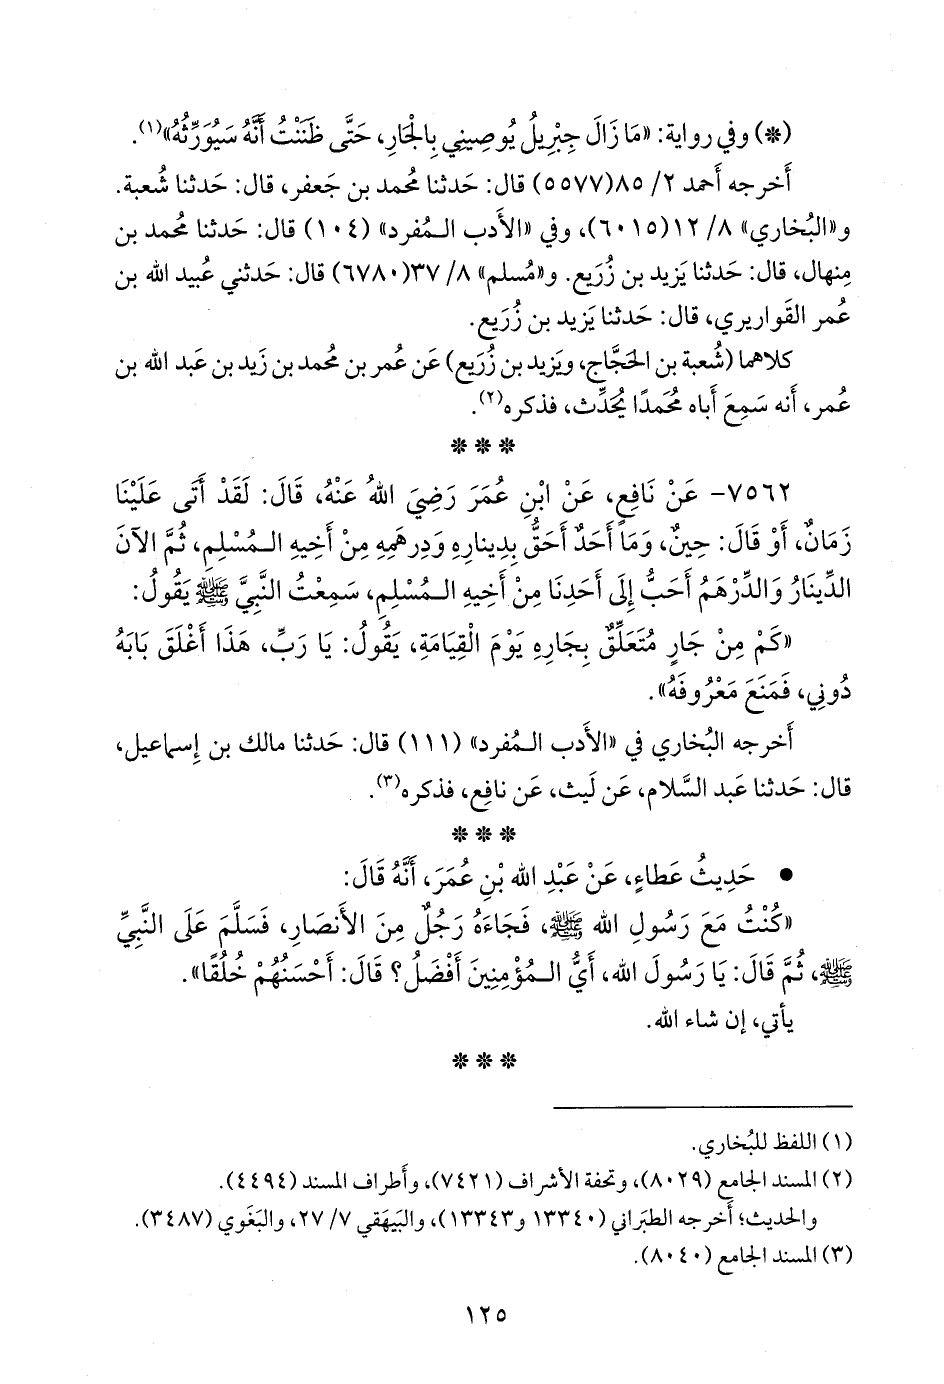 (*) وفي رواية: «مَا زَالَ جِبْرِيلُ يُوصِينِي بِالْجَارِ، حَتَّى ظَنَنْتُ أَنَّهُ سَيُوَرِّثُهُ»(١).
أَخرجه أَحمد ٢/ ٨٥(٥٥٧٧) قال: حَدثنا مُحمد بن جَعفر، قال: حَدثنا شُعبة.
و«البُخاري» ٨/ ١٢(٦٠١٥)، وفي «الأَدب المُفرد» (١٠٤) قال: حَدثنا مُحمد بن
مِنهال، قال: حَدثنا يَزيد بن زُرَيع. و«مُسلم» ٨/ ٣٧(٦٧٨٠) قال: حَدثني عُبيد الله بن
عُمر القَواريري، قال: حَدثنا يَزيد بن زُرَيع.
كلاهما (شُعبة بن الحَجَّاج، ويَزيد بن زُرَيع) عَن عُمر بن مُحمد بن زَيد بن عَبد الله بن
عُمر، أَنه سَمِعَ أَباه مُحَمدًا يُحَدِّث، فذكره(٢).
***
٧٥٦٢- عَنْ نَافِعٍ، عَنْ ابْنِ عُمَرَ رَضِيَ اللهُ عَنْهُ، قَالَ: لَقَدْ أَتَى عَلَيْنَا
زَمَانٌ، أَوْ قَالَ: حِينٌ، وَمَا أَحَدٌ أَحَقُّ بِدِينارِهِ وَدِرهَمِهِ مِنْ أَخِيهِ المُسْلِمِ، ثُمَّ الآنَ
الدِّينَارُ وَالدِّرْهَمُ أَحَبُّ إِلَى أَحَدِنَا مِنْ أَخِيهِ المُسْلِمِ، سَمِعْتُ النَّبِيَّ ﷺ يَقُولُ:
«كَمْ مِنْ جَارٍ مُتَعَلِّقٌ بِجَارِهِ يَوْمَ الْقِيَامَةِ، يَقُولُ: يَا رَبِّ، هَذَا أَغْلَقَ بَابَهُ
دُونِي، فَمَنَعَ مَعْرُوفَهُ».
أَخرجه البُخاري في «الأَدب المُفرد» (١١١) قال: حَدثنا مالك بن إِسماعيل،
قال: حَدثنا عَبد السَّلام، عَن لَيث، عَن نافِع، فذكره(٣).
***
• حَدِيثُ عَطَاءٍ، عَنْ عَبْدِ الله بْنِ عُمَرَ، أَنَّهُ قَالَ:
«كُنْتُ مَعَ رَسُولِ الله ﷺ، فَجَاءَهُ رَجُلٌ مِنَ الأَنصَارِ، فَسَلَّمَ عَلَى النَّبِيِّ
ﷺ، ثُمَّ قَالَ: يَا رَسُولَ الله، أَيُّ المُؤْمِنِينَ أَفْضَلُ؟ قَالَ: أَحْسَنُهُمْ خُلُقًا».
يأتي، إن شاء الله.
***
(١) اللفظ للبُخاري.
(٢) المسند الجامع (٨٠٢٩)، وتحفة الأشراف (٧٤٢١)، وأَطراف المسند (٤٤٩٤).
والحديث؛ أَخرجه الطبَراني (١٣٣٤٠ و١٣٣٤٣)، والبَيهَقي ٧/ ٢٧، والبَغَوي (٣٤٨٧).
(٣) المسند الجامع (٨٠٤٠).
١٢٥